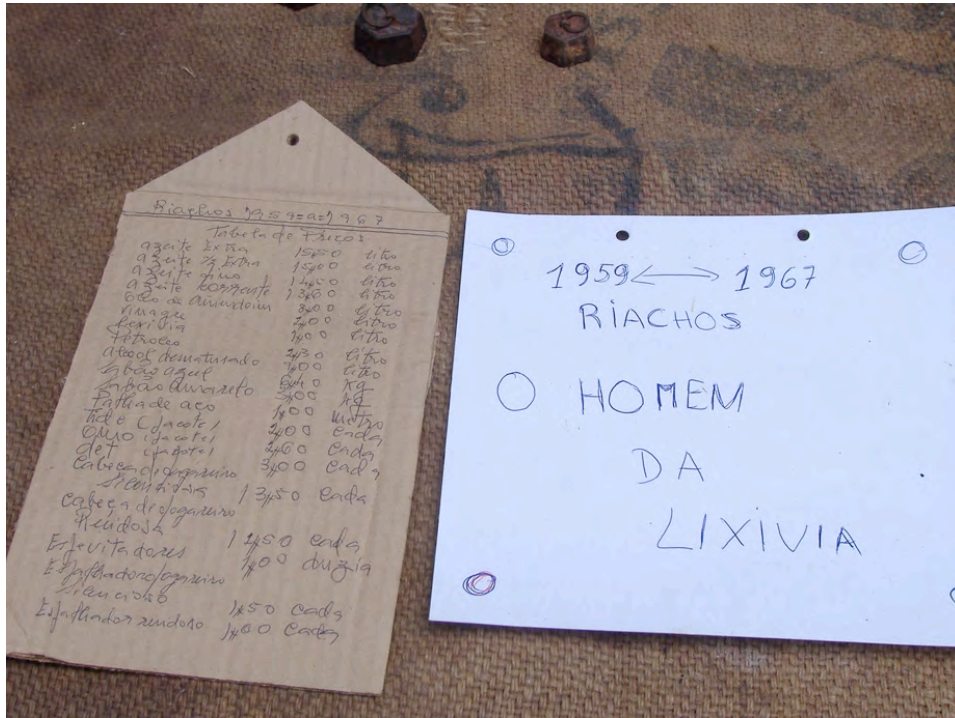 Riachos 1959=a=1967
Tabela de Preços
azeite Extra 15$50 litro
azeite ½ Extra 15$00 litro
azeite fino 14$50 litro
azeite corrente 13$60 litro
óleo de amendoim litro
vinagre 2$00 litro
Lixivia 1$00 litro
Petroleo litro
alcool desnaturado litro
Sabão azul 6$40 Kg
Sabão amarelo 5$00 Kg
Palha de aço 1$00 metro
Tide (pacote) 2$00 cada
Omo (pacote) 2$60 cada
det (pacote) 3$00 cada
Cabeça de fogareiro
Silenciosa 13$50 cada
Cabeça de fogareiro
Ruidosa 12$50 cada
Espevitadores 1$00 duzia
Espalhador fogareiro
Silencioso 1$50 cada
Espalhador ruidoso 1$00 cada
1959 ⟷ 1967
RIACHOS
O HOMEM
DA
LIXIVIA